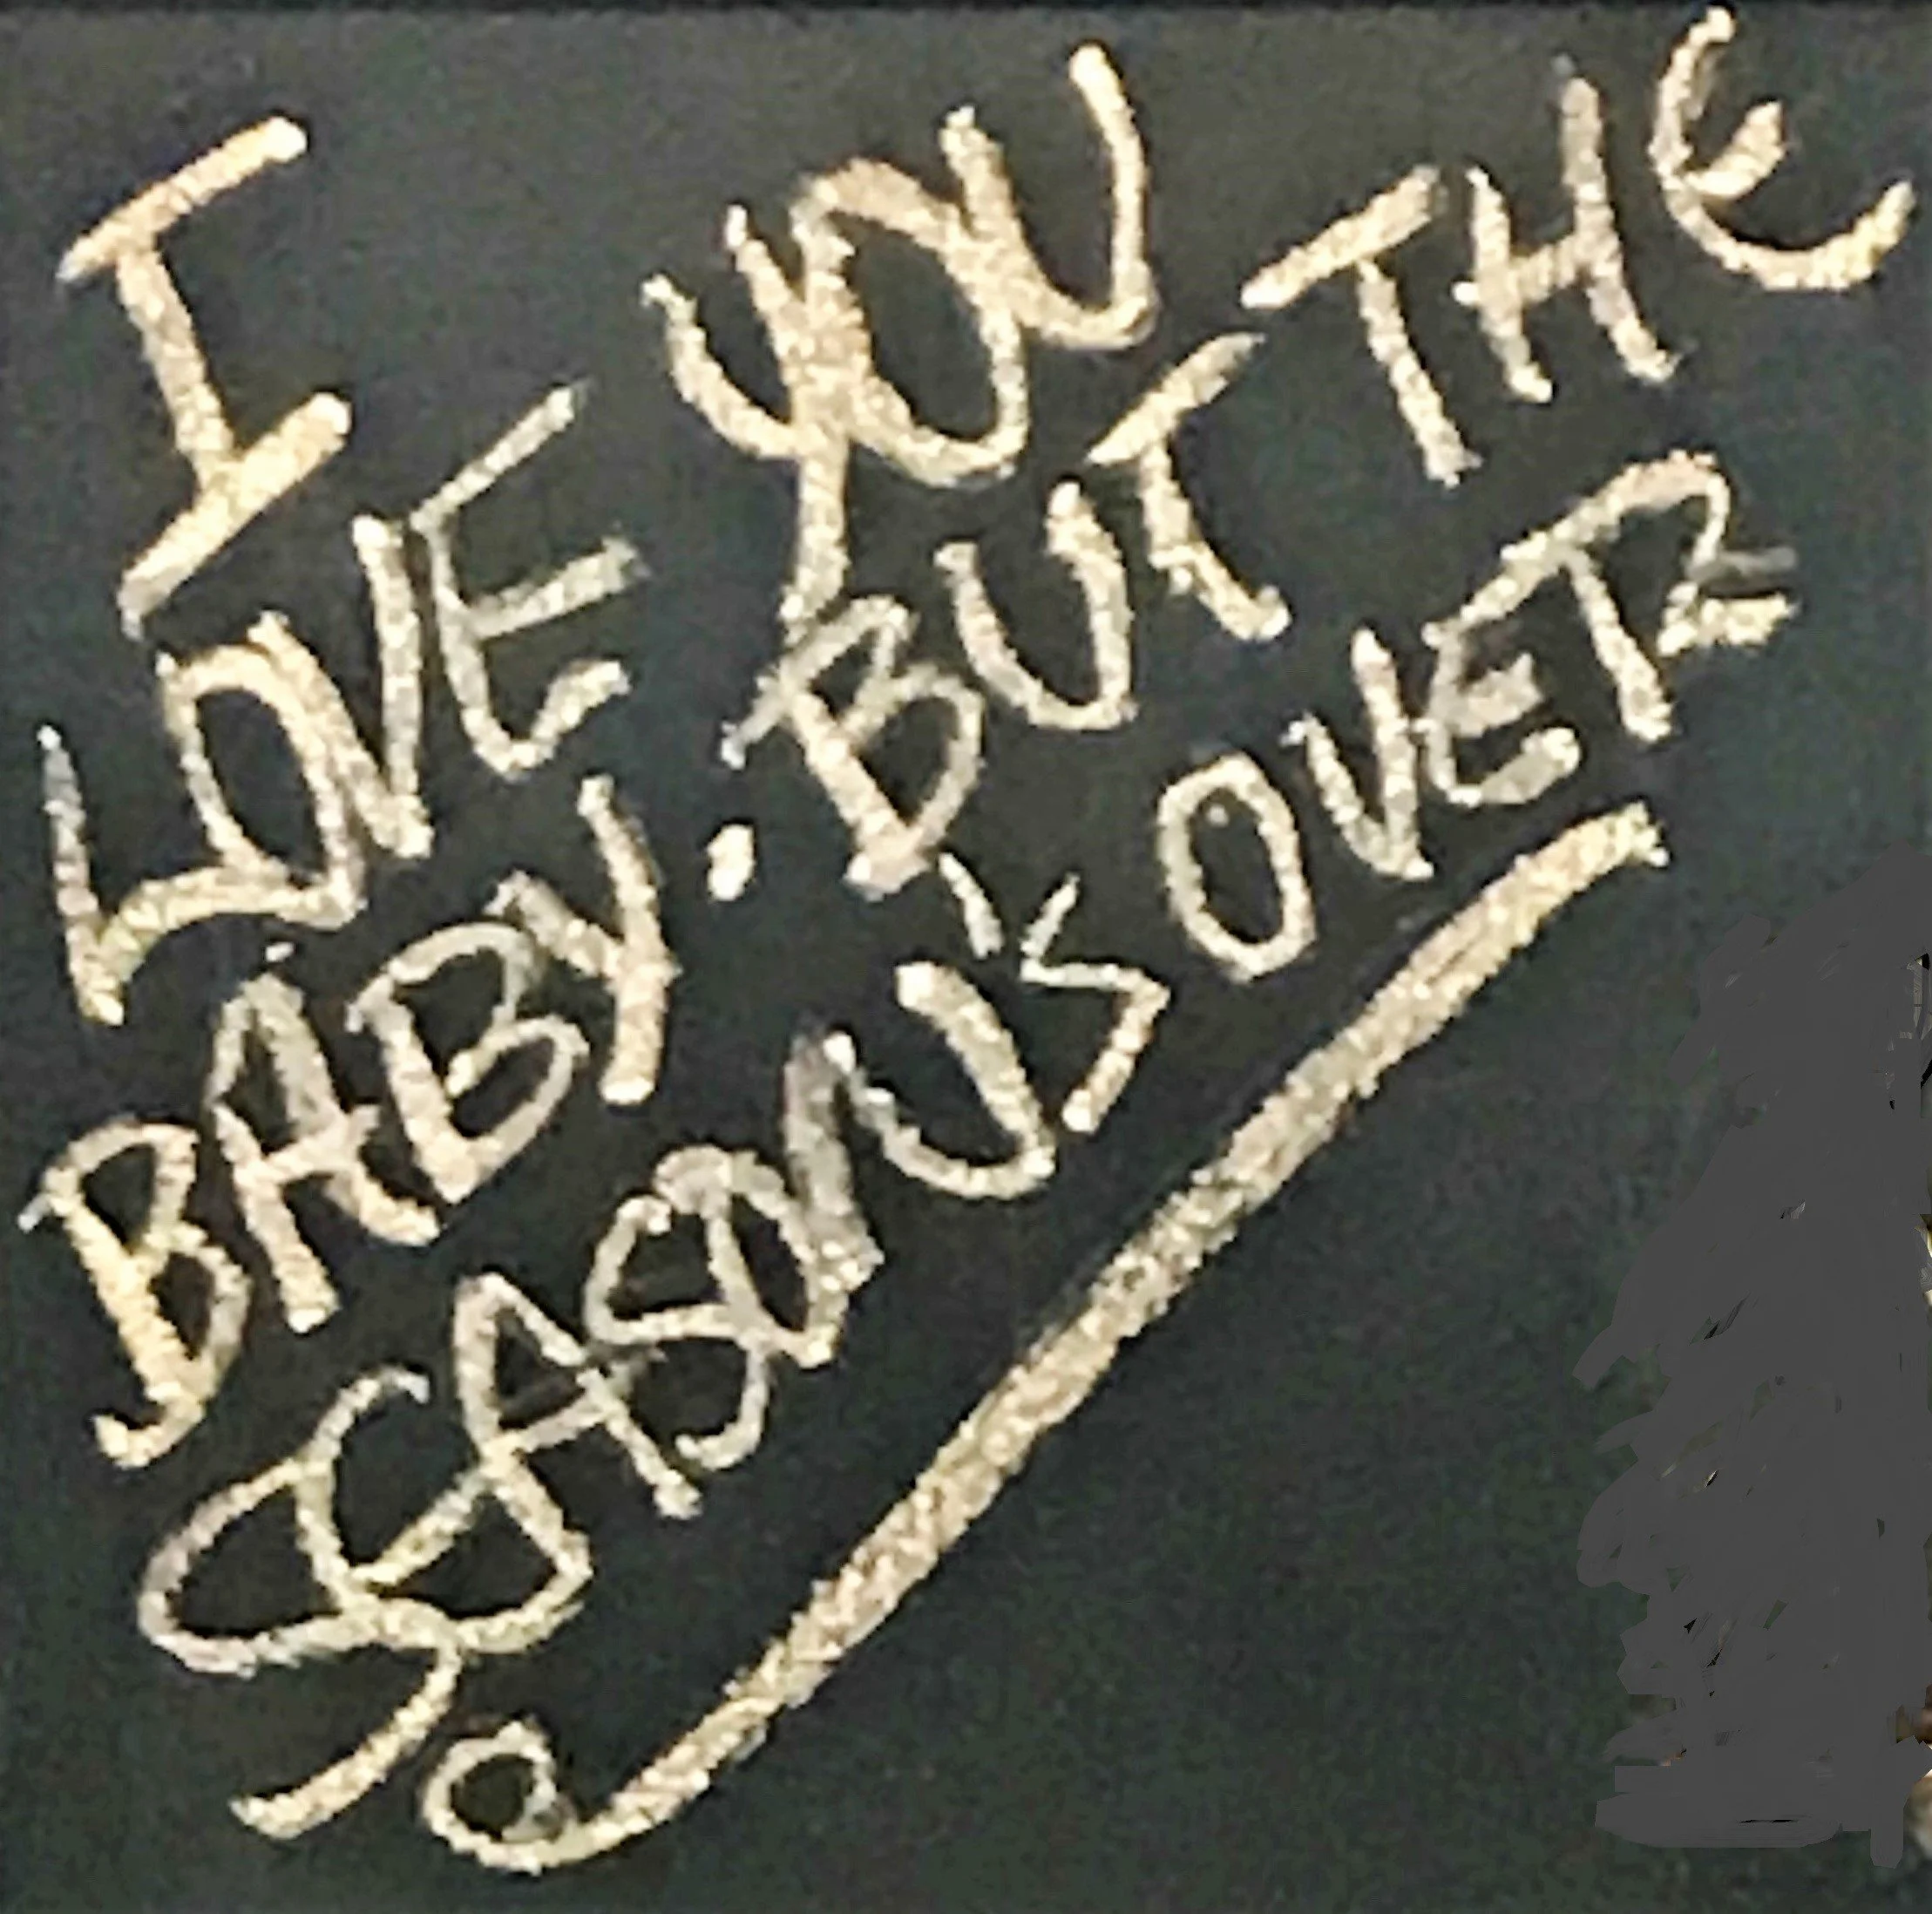 I
LOVE YOU
BABY. BUT THE
SEASON'S OVER